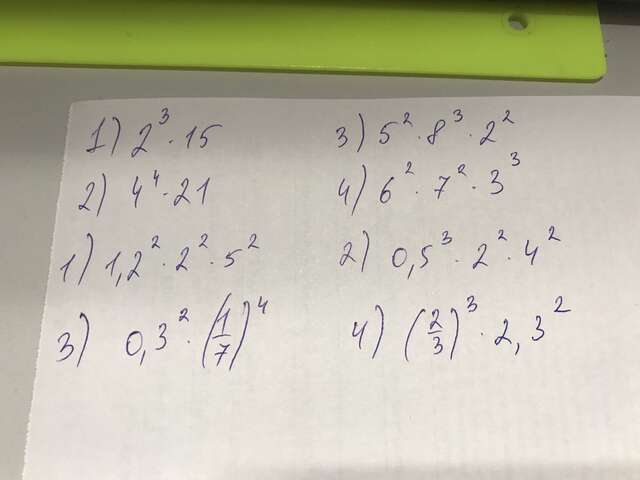 1) 2³ · 15 3) 5² · 8³ · 2²
2) 4⁴ · 21 4) 6² · 7² · 3³
1) 1,2² · 2² · 5² 2) 0,5³ · 2² · 4²
3) 0,3² · (1/7)⁴ 4) (2/3)³ · 2,3²